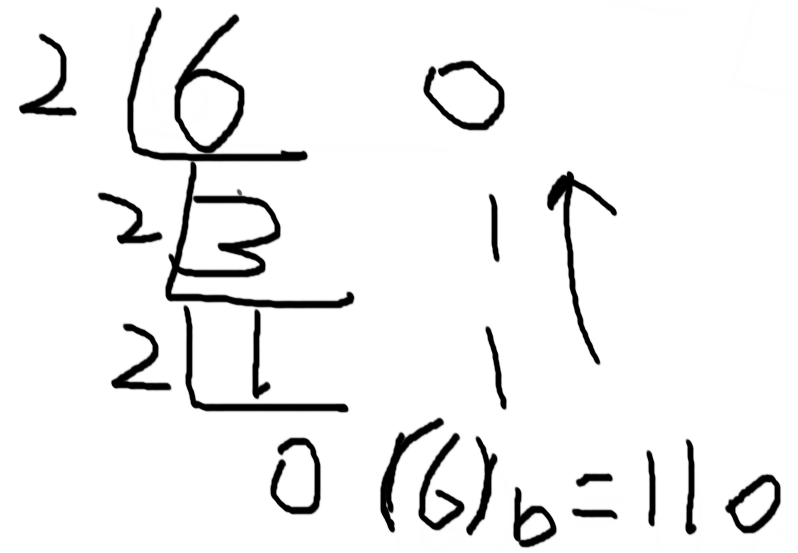 2 6 0
2 3 1
2 1 1
0 (6)b=110